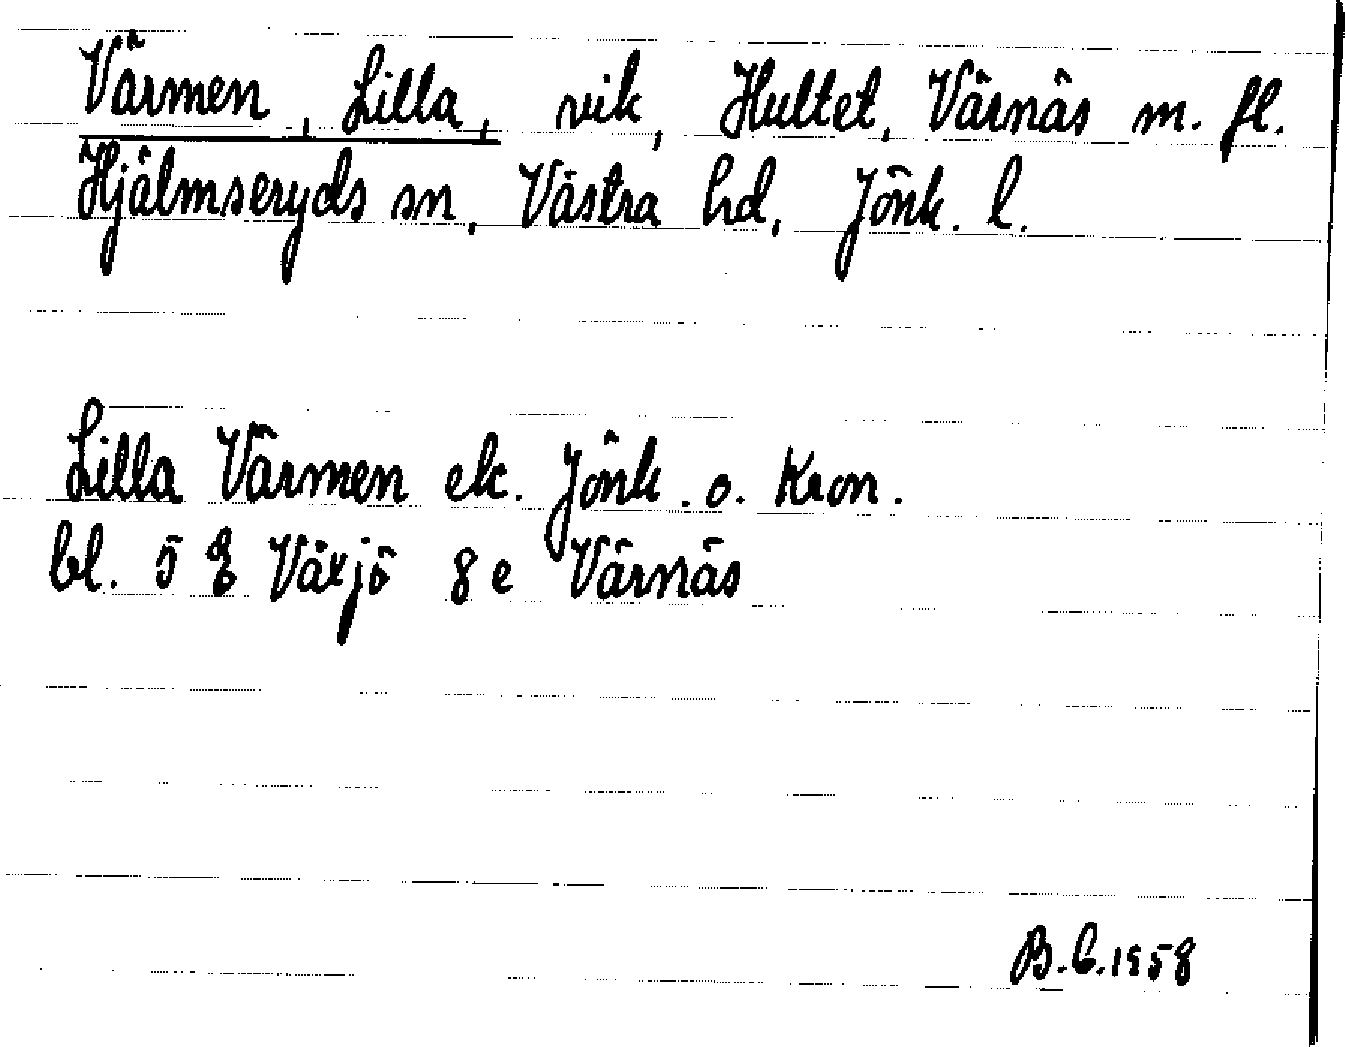 Värmen, Lilla, vik, Hultet, Värnäs m. fl.
Hjälmseryds sn, Västra hd, Jönk. l.
Lilla Värmen ek. Jönk. o. Kron.
bl. 5 E Växjö 8 e Värnäs
B.C.1958